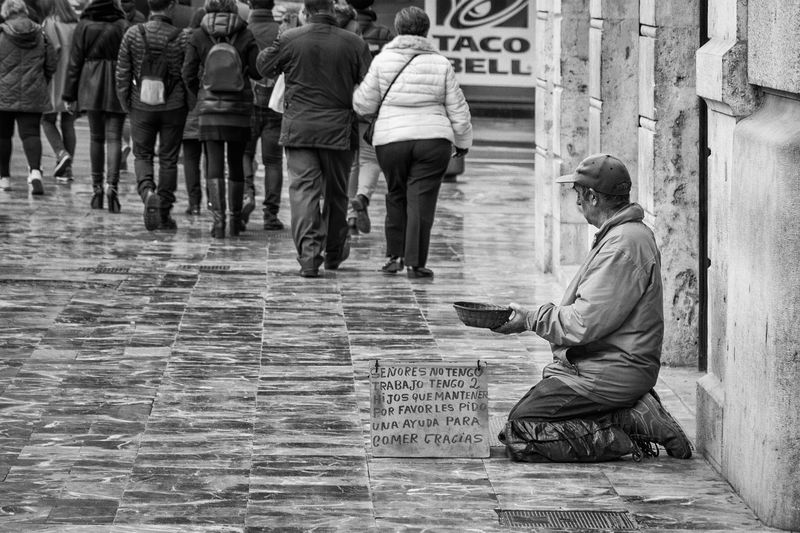 TACO
BELL
SEÑORES NO TENGO
TRABAJO TENGO 2
HIJOS QUE MANTENER
POR FAVOR LES PIDO
UNA AYUDA PARA
COMER GRACIAS